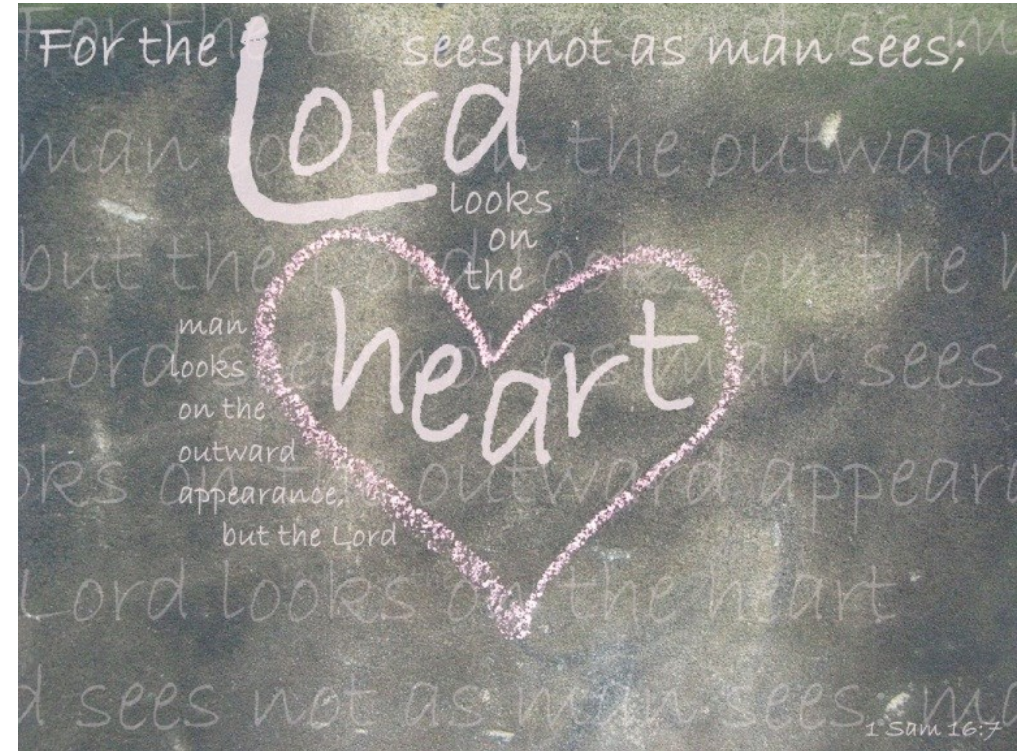 For the Lord sees not as man sees;
man
looks
on the
outward
appearance,
but the Lord
looks
on
the
heart
man looks on the outward
but the Lord looks on the h
Lord sees not as man sees.
oks on the outward appeara
Lord looks on the heart
d sees not as man sees. ma
1 Sam 16:7